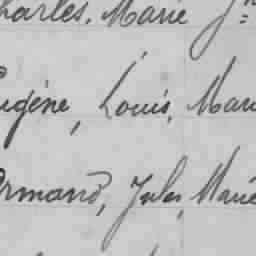 Charles, Marie Jn
Eugène, Louis, Mari
Armand, Jules, Marie